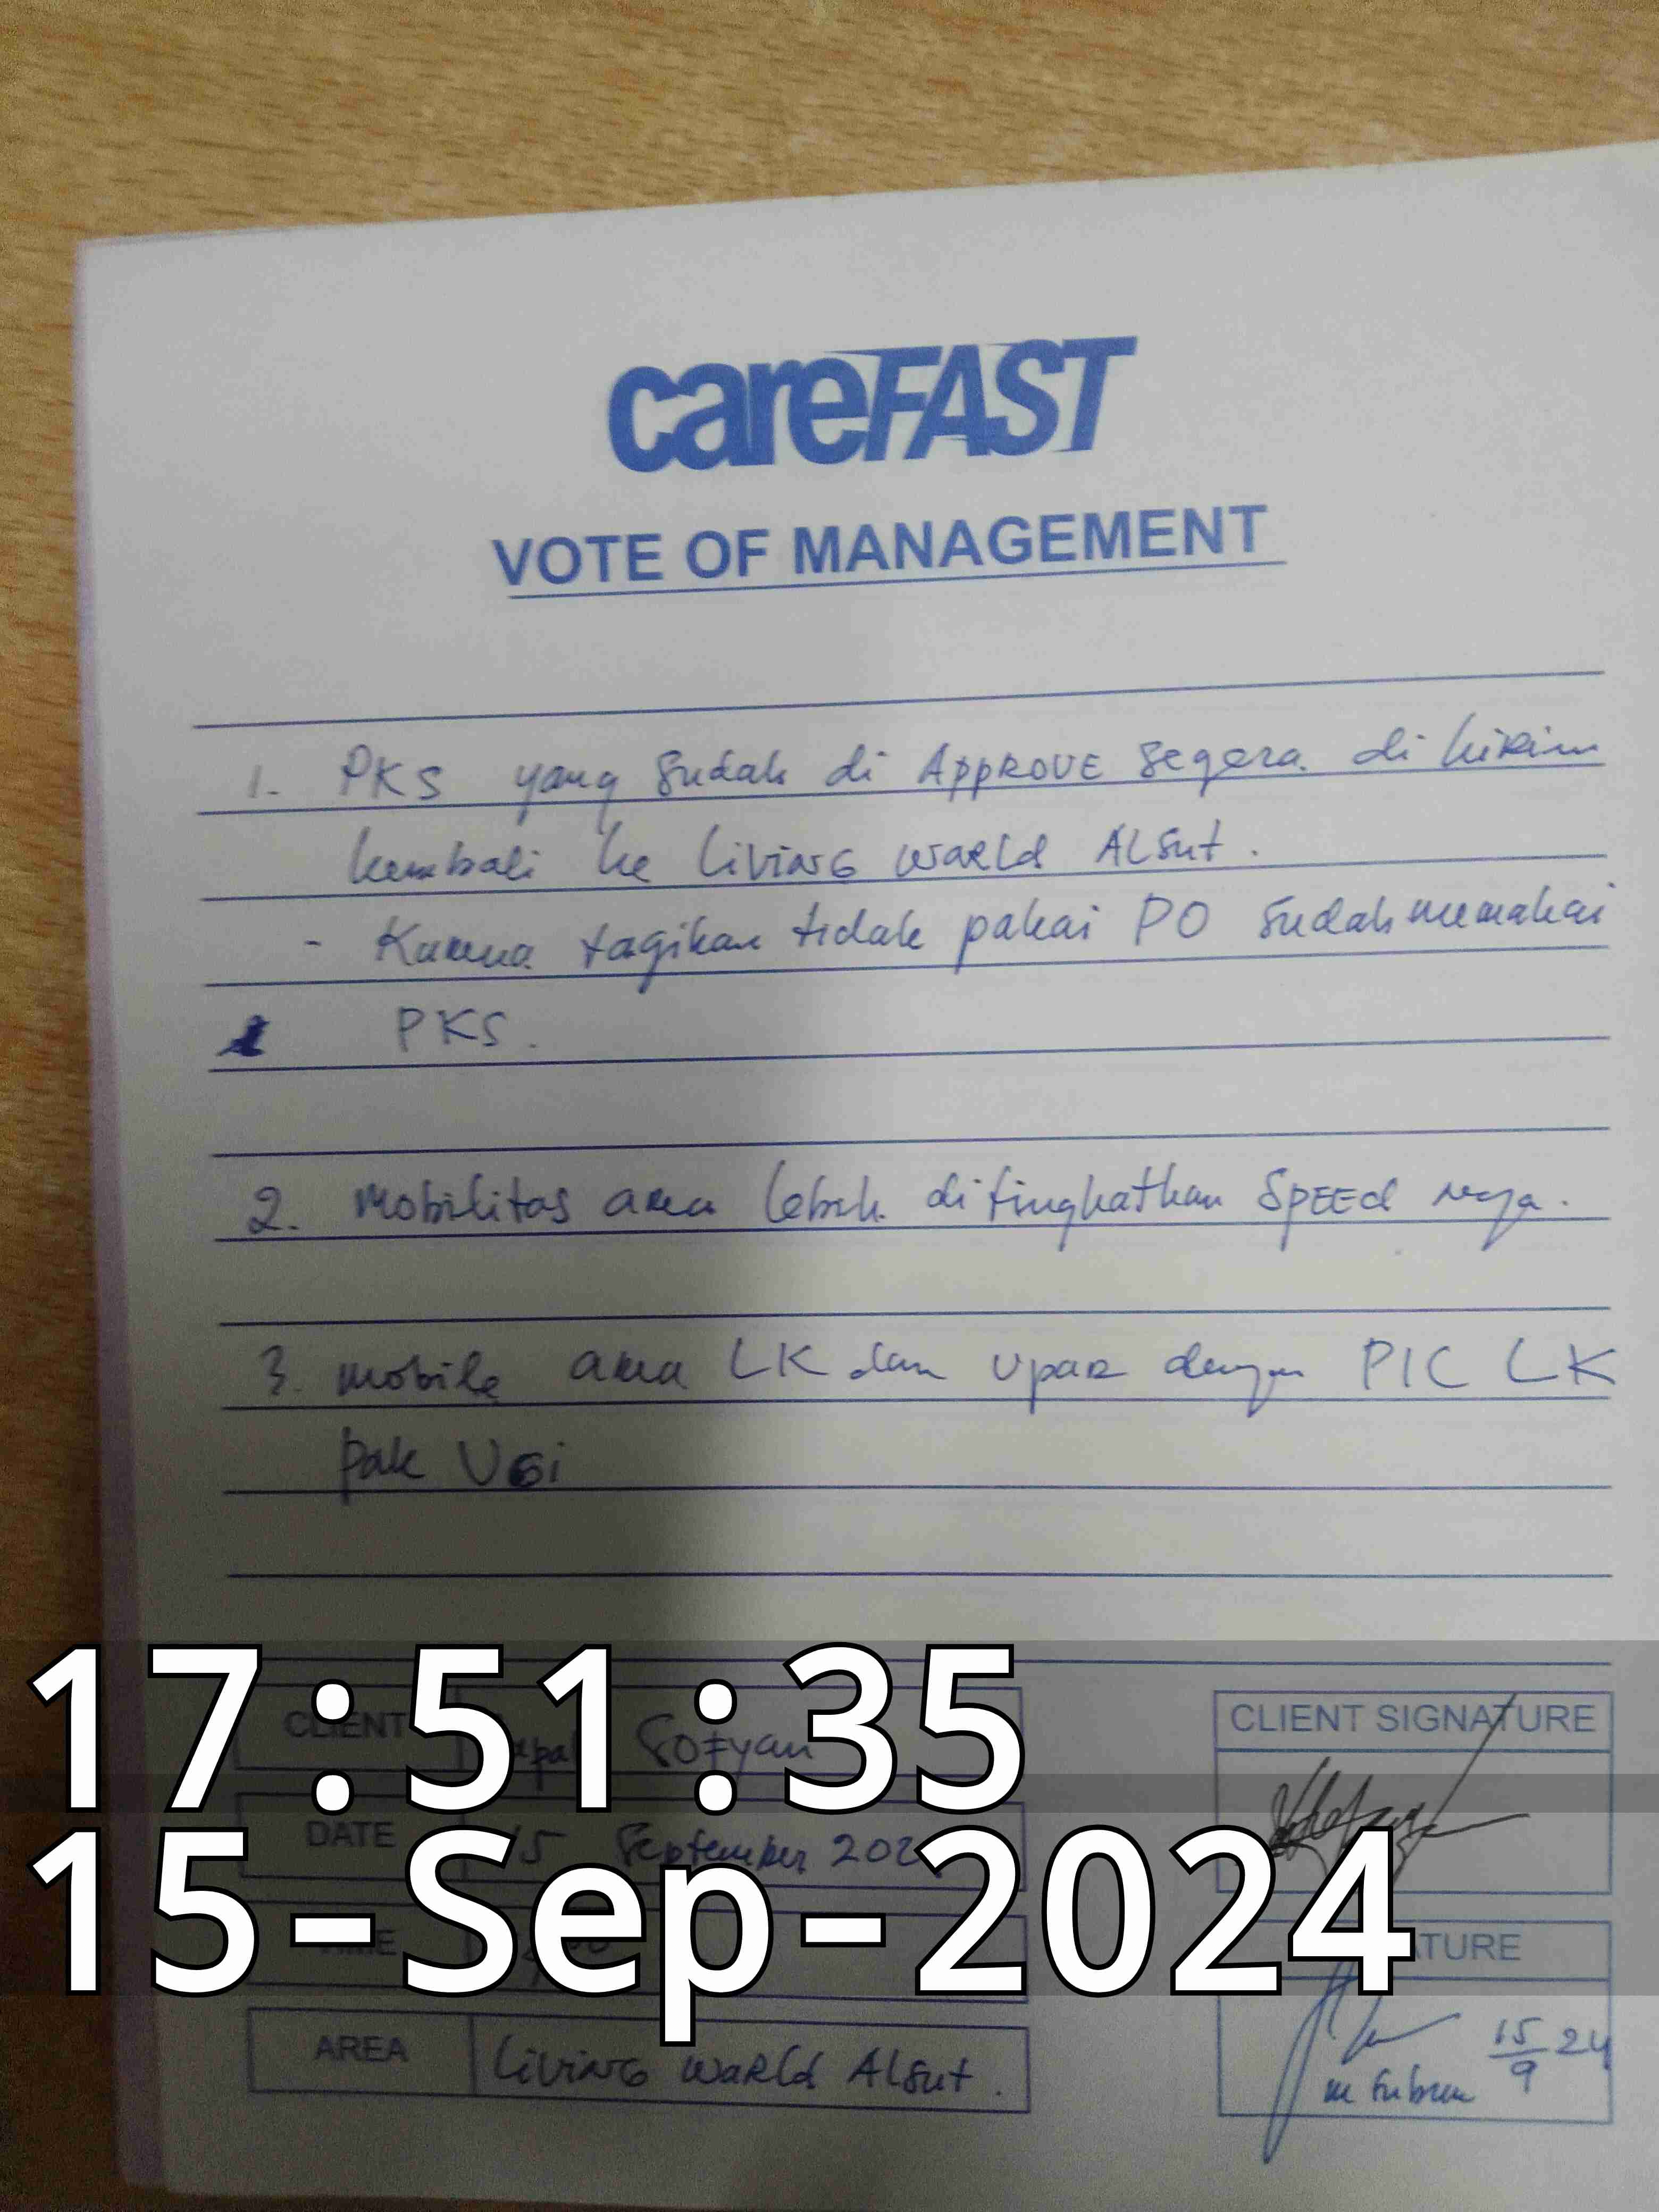 careFAST
VOTE OF MANAGEMENT
1. PKS yang sudah di APPROVE segera di kirim
kembali ke LIVING WORLD ALSUT.
- Karena tagihan tidak pakai PO sudah memakai
PKS.
2. Mobilitas area lebih ditingkatkan SPEED nya.
3. mobile area LK dan Upar dengan PIC LK
pak UGi
17:51:35
CLIENT Sofyan
CLIENT SIGNATURE
DATE 15 September
15-Sep-2024
AREA LIVING WORLD ALSUT.
15/9 24